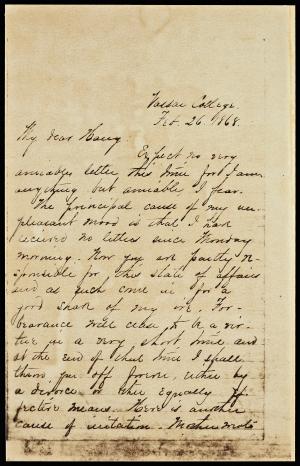 Vassar College.
Feb. 26. 1868.
My dear Harry.
Expect no very
amiable letter this time for I am
anything but amiable I fear.
The principal cause of my un-
pleasant mood is that I have
received no letters since Monday
morning. Now you are partly re-
sponsible for this state of affairs
and as such come in for a
good share of my ire. For-
bearance will cease to be a vir-
tue in a very short time and
at the end of that time I shall
throw you off forever, either by
a divorce or other equally ef-
fective means. Here is another
cause of irritation. Mother wrote